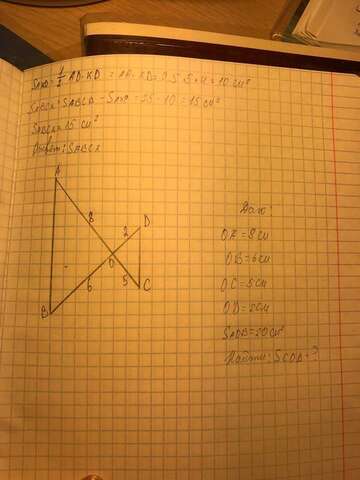 S_AKD = 1/2 AD · KD = AD · KD = 0,5 · 5 · 4 = 10 см²
S_ABCK = S_ABCD − S_AKD = 25 − 10 = 15 см²
S_ABCK = 15 см²
Ответ: S_ABCK
A
8
2
D
O
B
6
5
C
Дано:
OA = 8 см
OB = 6 см
OC = 5 см
OD = 2 см
S_AOB = 20 см²
Найти: S_COD - ?